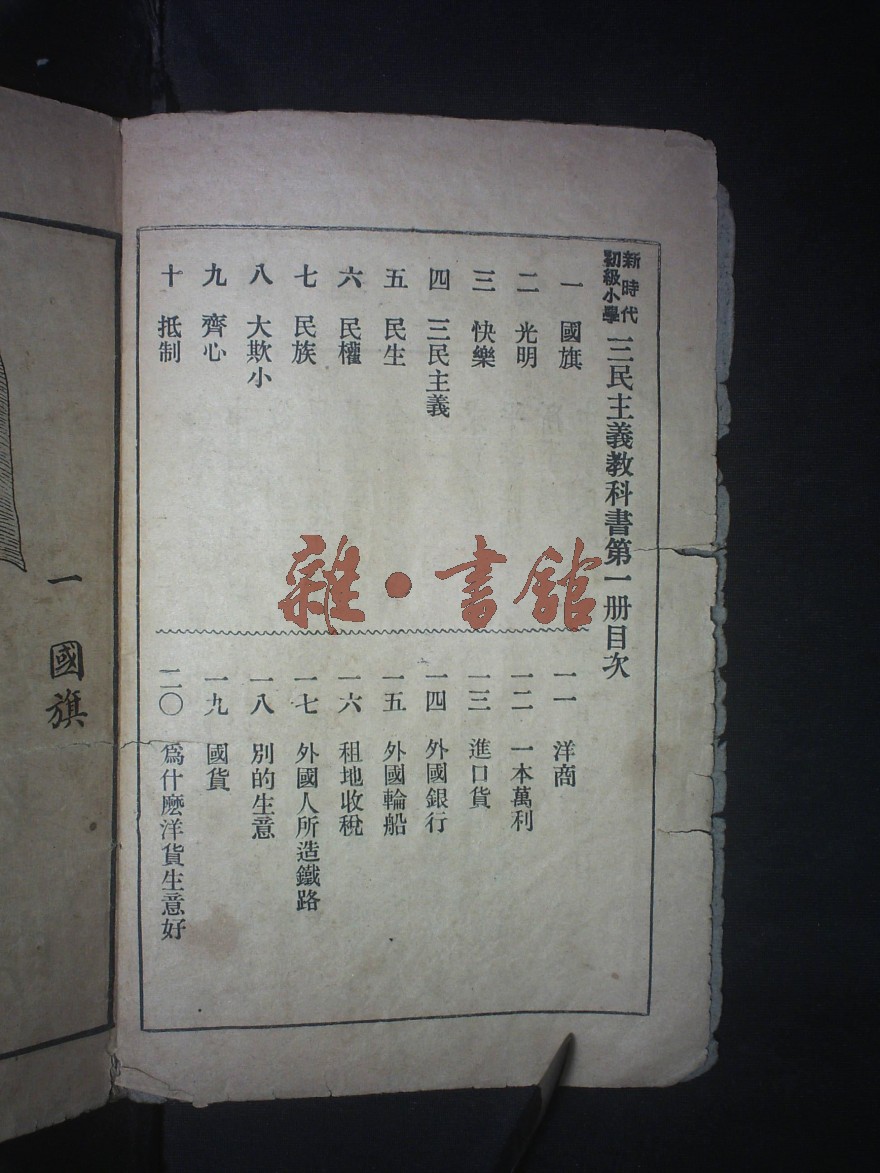 新時代
初級小學
三民主義教科書第一册目次
一 國旗
二 光明
三 快樂
四 三民主義
五 民生
六 民權
七 民族
八 大欺小
九 齊心
十 抵制
一一 洋商
一二 一本萬利
一三 進口貨
一四 外國銀行
一五 外國輪船
一六 租地收稅
一七 外國人所造鐵路
一八 別的生意
一九 國貨
二〇 爲什麽洋貨生意好
雜·書館
一 國旗